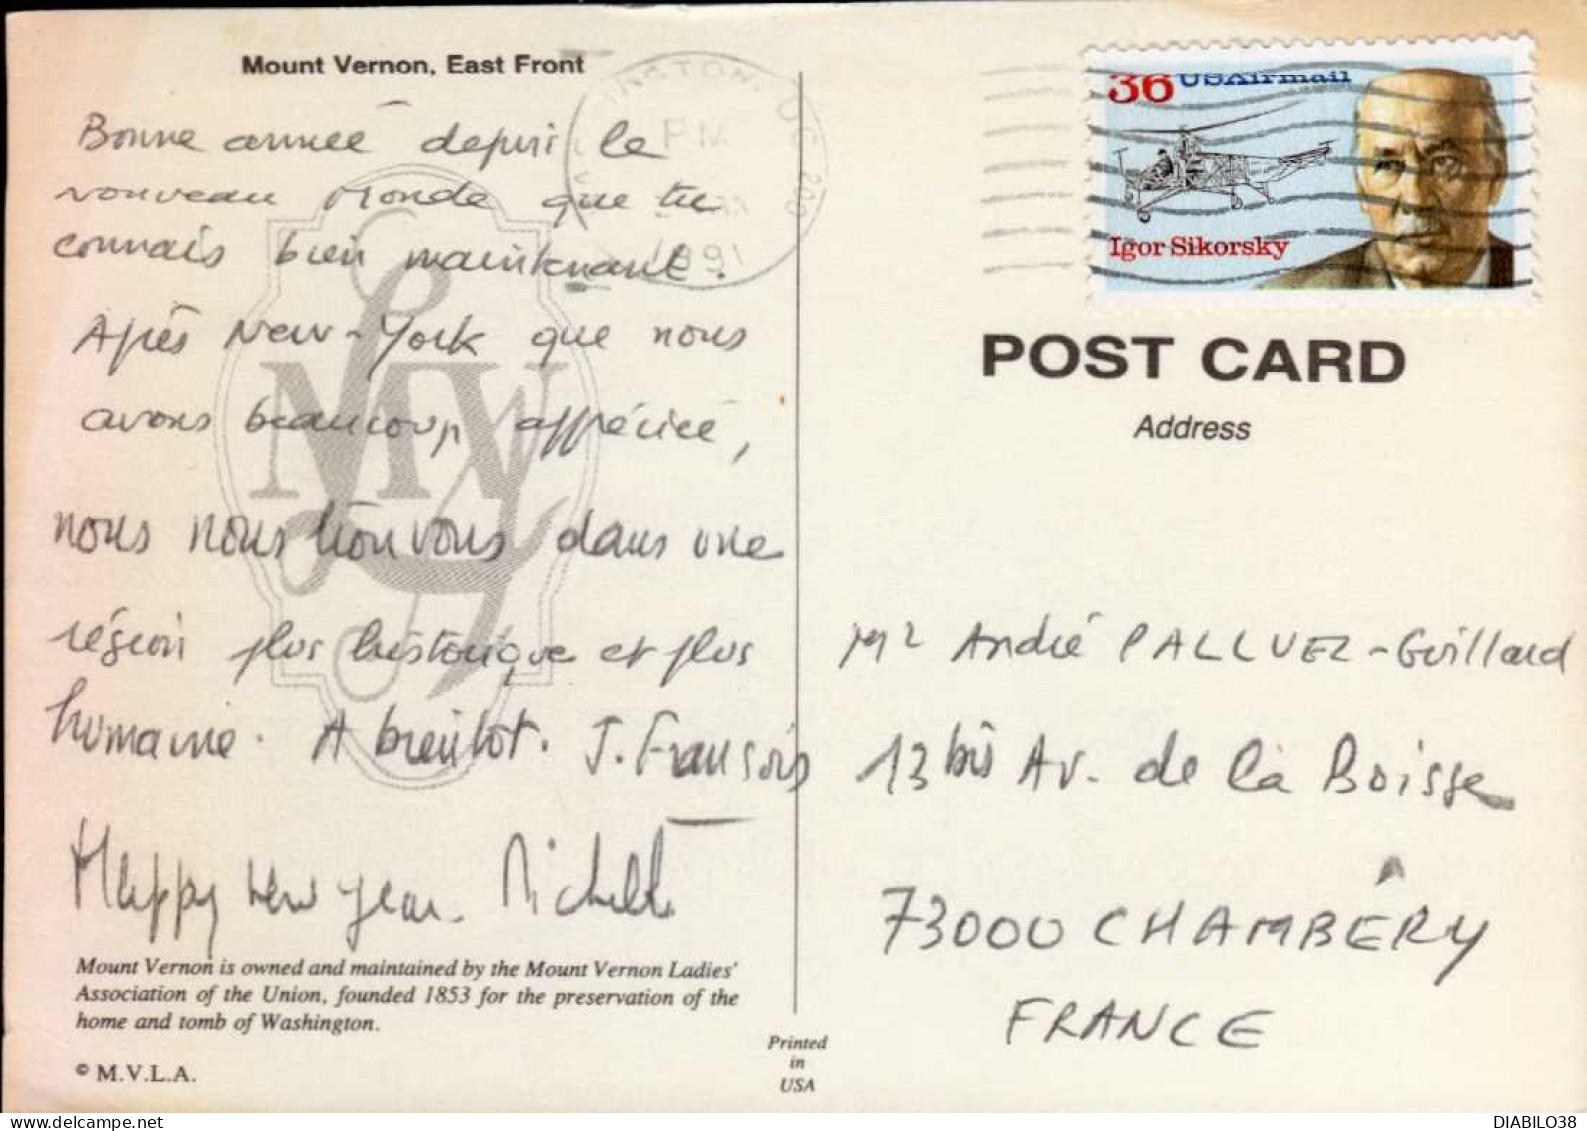 Mount Vernon, East Front
Bonne année depuis le
nouveau Monde que tu
connais bien maintenant.
Après New-York que nous
avons beaucoup apprécié,
nous nous trouvons dans une
région plus historique et plus
humaine. A bientôt. J. François
Happy New Year. Michelle
Mount Vernon is owned and maintained by the Mount Vernon Ladies'
Association of the Union, founded 1853 for the preservation of the
home and tomb of Washington.
© M.V.L.A.
Printed
in
USA
INGTON, DC 200
PM
1991
36 USAirmail
Igor Sikorsky
POST CARD
Address
Mr André PALLUEZ-Guillard
13 bis Av. de la Boisse
73000 CHAMBÊRY
FRANCE
MV
DIABILO38